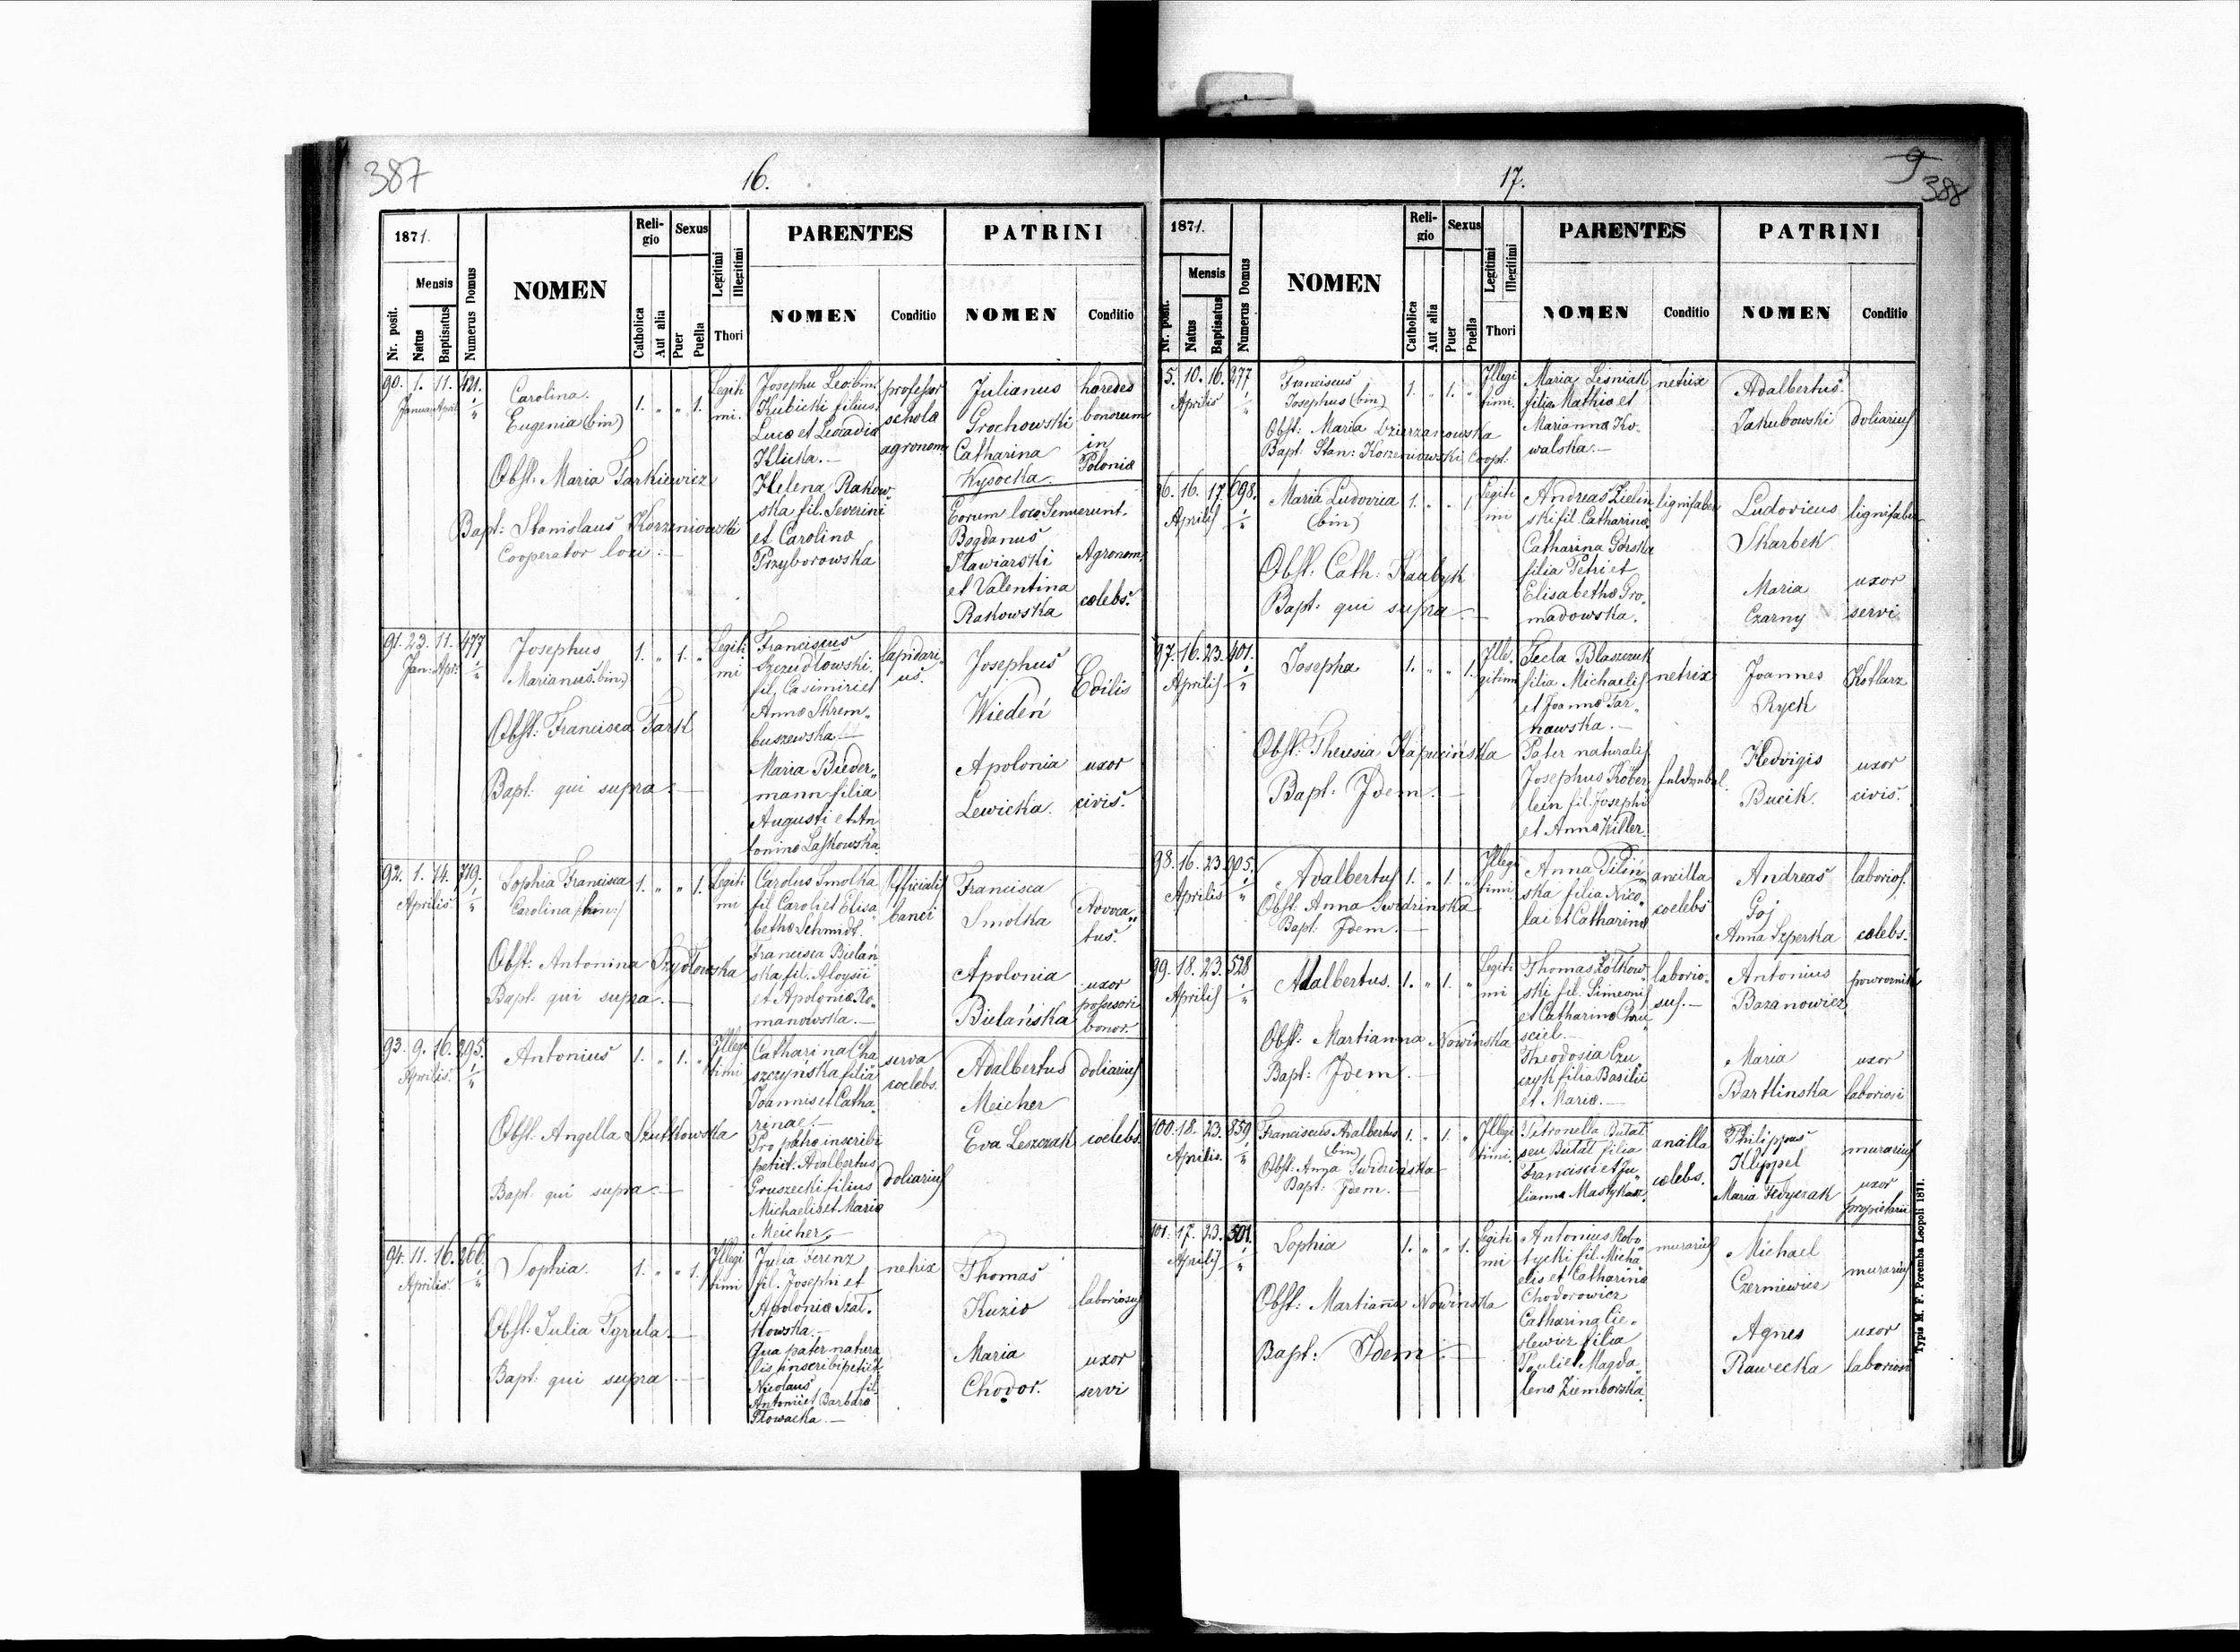 387
16.
1871.
Mensis
Nr. posit.
Natus
Baptisatus
Numerus Domus
NOMEN
Reli-
gio
Catholica
Aut alia
Sexus
Puer
Puella
Legitimi
Illegitimi
Thori
PARENTES
NOMEN
Conditio
PATRINI
NOMEN
Conditio
90. 1. 11. 421.
Januar. April.
Carolina
Eugenia (bin)
Obst: Maria Tarkiewicz
Bapt: Stanislaus Korzeniowski
Cooperator loci.
1. " " 1.
Legiti
mi.
Josephu Leo (bin)
Kubicki filius
Lucæ et Leocadiæ
Klicka.
Helena Rakow-
ska fil. Severini
et Carolinæ
Przyborowska
professor
scholæ
agronom.
Julianus
Grochowski
Catharina
Wysocka.
Eorum loco
Bogdanus
Stawiarski
et Valentina
Rakowska
hæredes
bonorum
in
Poloniæ
Agronom.
cœlebs.
91. 23. 11. 477
Jan: Apr:
Josephus
Marianus (bin)
Obst: Francisca Tark
Bapt: qui supra.
1. " 1. "
Legiti
mi
Franciscus
Szezudłowski
fil. Casimiri et
Annæ Skrem-
buszewska
Maria Bieder-
mann filia
Augusti et An
toninæ Laskowska
lapidari-
us.
Josephus
Wiedeń
Apolonia
Lewicka.
Edilis
uxor
civis.
92. 1. 14. 719.
Aprilis
Sophia Francisca
Carolina (bin)
Obst: Antonina Szydłowska
Bapt: qui supra.
1. " " 1.
Legiti
mi
Carolus Smolka
fil Caroli et Elisa
bethæ Schmidt.
Francisca Bielań
ska fil. Aloysii
et Apoloniæ Ro-
manowska.
Officialis
banci
Francisca
Smolka
Apolonia
Bielańska
Advoca-
tus.
uxor
possessori
bonor.
93. 9. 16. 295.
Aprilis.
Antonius
Obst: Angella Szutkowska
Bapt: qui supra.
1. " 1. "
Illegi
timi
Catharina Cha
szczyńska filia
Joannis et Catha-
rinae.
Pro patre inscribi
petiit. Adalbertus
Gruszecki filius
Michaelis et Mariæ
Meicher.
serva
cœlebs.
doliarius
Adalbertus
Meicher
Eva Leszczak
doliarius
cœlebs.
94. 11. 16. 266.
Aprilis.
Sophia.
Obst: Julia Tgrula
Bapt: qui supra
1. " " 1.
Illegi
timi
Julia Ferenz
fil. Josephi et
Apoloniæ Szat-
kowska.
Qua pater natura
lis inscribi petiit
Nicolaus fil.
Antonii et Barbaræ
Płowacka.
netrix
Thomas
Kuzio
Maria
Chodor.
laboriosus
uxor
servi
17.
9
388
1871.
Mensis
Nr. posit.
Natus
Baptisatus
Numerus Domus
NOMEN
Reli-
gio
Catholica
Aut alia
Sexus
Puer
Puella
Legitimi
Illegitimi
Thori
PARENTES
NOMEN
Conditio
PATRINI
NOMEN
Conditio
5. 10. 16. 277
Aprilis
Franciscus
Josephus (bin)
Obst: Maria Dzierzanowska
Bapt: Stan: Korzeniowski Coopt.
1. " 1. "
Illegi
timi.
Maria Leśniak
filia Mathiæ et
Marianna Ko-
walska.
netrix
Adalbertus
Jakubowski
doliarius
96. 16. 17. 698.
Aprilis
Maria Ludovica
(bin)
Obst: Cath: Kaubyk
Bapt: qui supra
1. " " 1
Legiti
mi
Andreas Zielin
ski fil. Catharinæ
Catharina Górska
filia Petri et
Elisabethæ Gro-
madowska.
lignifaber
Ludovicus
Skarbek
Maria
Czarny
lignifaber
uxor
servi
97. 16. 23. 401.
Aprilis
Josepha
Obst: Theresia Kapucińska
Bapt: Idem.
1. " " 1.
Ille-
gitimi
Tecla Blaszczuk
filia Michaelis
et Joannæ Tar-
nawska.
Pater naturalis
Josephus Köber-
lein fil. Josephi
et Annæ Killer.
netrix
Joannes
Ryck
Hedvigis
Bucik.
Kotlarz
uxor
civis.
98. 16. 23. 905.
Aprilis
Adalbertus
Obst: Anna Swidzinska
Bapt: Idem.
1. " 1. "
Illegi
timi
Anna Piliń
ska filia Nico-
lai et Catharinæ
ancilla
cœlebs
Andreas
Goj
Anna Szperka
laborios.
cœlebs.
99. 18. 23. 528
Aprilis
Adalbertus.
Obst: Martianna Nowińska
Bapt: Idem.
1. " 1. "
Legiti
mi
Thomas Żółkow-
ski fil. Simeonis
et Catharinæ Chru
sciel.
Theodosia Czu-
czyk filia Basilii
et Mariæ.
laborio-
sus.
Antonius
Bazanowicz
Maria
Bartlinska
powroznik
uxor
laboriosi
100. 18. 23. 859
Aprilis.
Franciscus Adalbertus
(bin)
Obst: Anna Swidzinska
Bapt: Idem.
1. " 1. "
Illegi
timi.
Petronella Butat
seu Butat filia
Francisci et Ju-
lianna Mastykasz.
ancilla
cœlebs.
Philippus
Klippel
Maria Fedyczak
murarius
uxor
proprietarii
101. 17. 23. 501.
Aprilis
Sophia
Obst: Martianna Nowińska
Bapt: Idem
1. " " 1.
Legiti
mi
Antonius Robo
tycki fil. Micha-
elis et Catharinæ
Chodorowicz
Catharina Cie-
slewicz filia
Pauli et Magda
lenæ Ziemborska
murarius
Michael
Czerniewicz
Agnes
Rawecka
murarius
uxor
laboriosi
Typis M. F. Poremba Leopoli 1871.